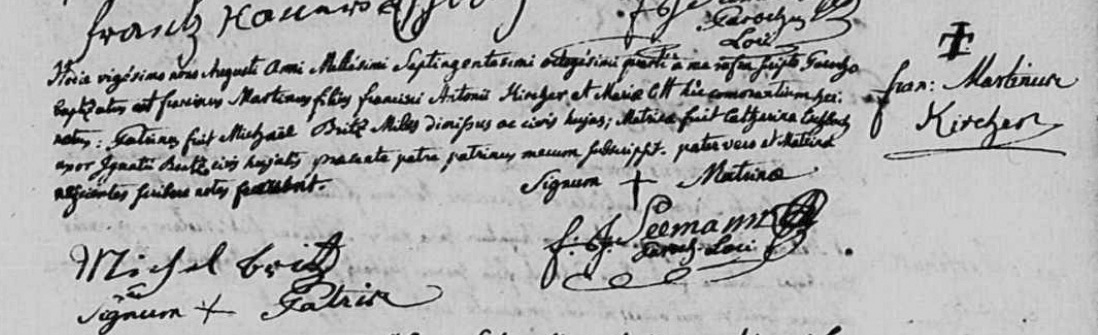 frantz
Paroch
Loci
Hocie vigesimo nono Augusti Anni Millesimi Septingentesimi octogesimi quarti a me infra scripto Parocho
baptizatus est franciscus Martinus filius francisci Antonii Kircher et Mariæ Ott hic comorantium heri
natus; Patrinus fuit Michaël Britz Miles dimissus ac civis hujas; Matrina fuit Catharina
uxor Ignatii civis hujatis præsente patre patrinus mecum subscripsit. pater vero et Matrina
scribere notis
Signum + Matrinæ
f. J. Seemann
Paroch. Loci
Michel britz
Signum + Patris
fran: Martinus
Kircher